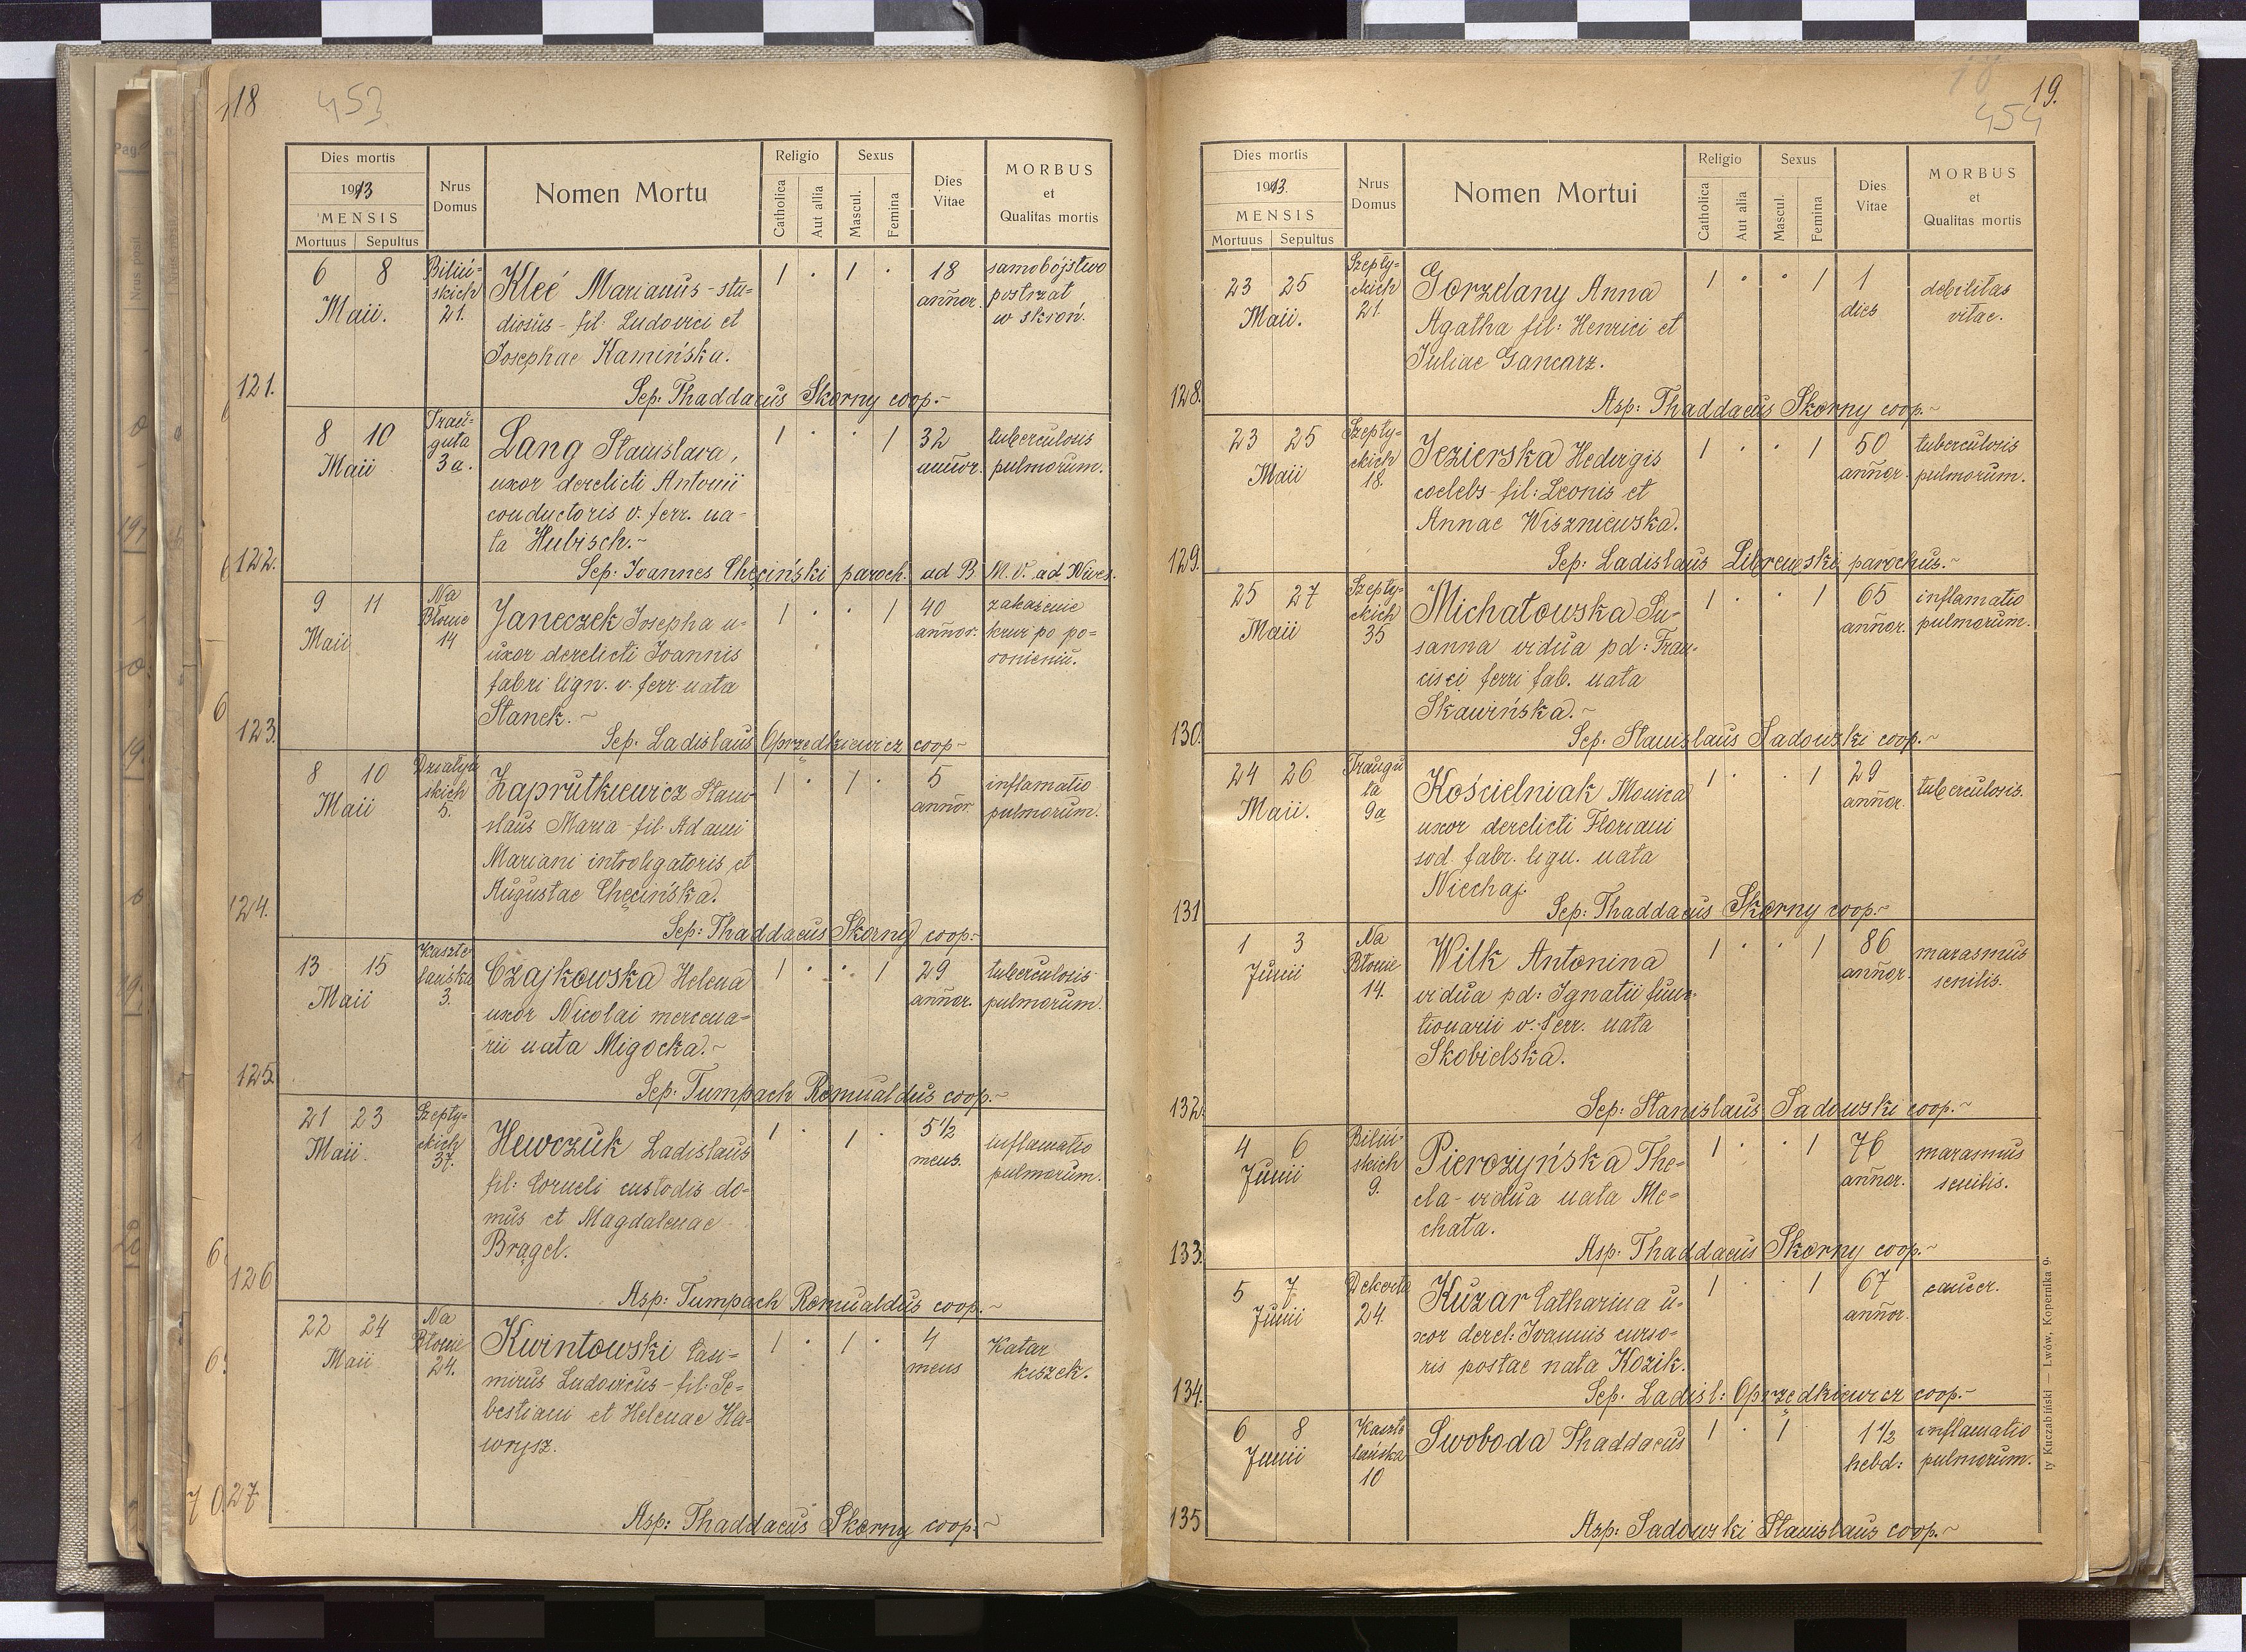 118
453
Dies mortis
1913
MENSIS
Mortuus Sepultus
Nrus
Domus
Nomen Mortu
Religio
Catholica
Aut alia
Sexus
Mascul.
Femina
Dies
Vitae
MORBUS
et
Qualitas mortis
6 8 Maii.
Biliń-
skich
21.
Kleé Marianus - stu-
diosus - fil: Ludovici et
Josephae Kamińska.
1 · 1 ·
18
annor.
samobójstwo
postrzał
w skroń.
121.
Sep: Thaddaeus Skorny coop.-
8 10 Maii
Trau-
guta
3a.
Lang Stanislava,
uxor derelicti Antonii
conductoris v. ferr. na-
ta Hubisch.~
1 · · 1
32
annor.
tuberculosis
pulmorum.
122.
Sep: Joannes Chęciński paroch. ad B. M. V. ad Nives.
9 11
Maii
Na
Błonie
14
Janeczek Josepha u-
uxor derelicti Joannis
fabri lign. v. ferr. nata
Stanek.~
1 · · 1
40
annor.
zakażenie
krwi po po-
ronieniu.
123.
Sep. Ladislaus Oprzędkiewicz coop~
8 10
Maii
Działyń
skich
5.
Zaprutkiewicz Stani-
slaus Maria - fil. Adami
Mariani introligatoris et
Augustae Chęcińska.
1 · 1 ·
5
annor.
inflamatio
pulmorum.
124.
Sep: Thaddaeus Skorny coop:-
13 15
Maii
Kaszte-
lańska
3.
Czajkowska Helena
uxor Nicolai mercena-
rii nata Migocka.~
1 · · 1
29
annor.
tuberculosis
pulmorum.
125.
Sep: Tumpach Romualdus coop.~
21 23
Maii.
Szepty-
ckich
37.
Hewczuk Ladislaus
fil: Corneli custodis do-
mus et Magdalenae
Brągel.
1 · 1 ·
5 1/2
mens.
inflamatio
pulmorum.
126
Asp: Tumpach Romualdus coop.~
22 24
Maii
Na
Błonie
24.
Kwintowski Casi-
mirus Ludovicus - fil: Se-
bestiani et Helenae Ha-
wrysz.
1 · 1 ·
4
mens
Katar
kiszek.
127
Asp: Thaddaeus Skorny coop.~
19.
454
Dies mortis
1913.
MENSIS
Mortuus Sepultus
Nrus
Domus
Nomen Mortui
Religio
Catholica
Aut alia
Sexus
Mascul.
Femina
Dies
Vitae
MORBUS
et
Qualitas mortis
23 25
Maii.
Szepty-
ckich
21.
Gorzelany Anna
Agatha fil: Henrici et
Juliae Gancarz.
1 · · 1
1
dies
debilitas
vitae.
128.
Asp: Thaddaeus Skorny coop.~
23 25
Maii
Szepty-
ckich
18.
Jezierska Hedvigis
coelebs - fil: Leonis et
Annae Wiszniewska.
1 · · 1
50
annor.
tuberculosis
pulmorum.
129.
Sep: Ladislaus Librewski parochus.~
25 27
Maii
Szepty-
ckich
35
Michałowska Su-
sanna vidua pd: Fran-
cisci ferri fab. nata
Skawińska.~
1 · · 1
65
annor.
inflamatio
pulmorum.
130.
Sep. Stanislaus Sadowski coop.~
24 26
Maii.
Traugu
ta
9a
Kościelniak Monica
uxor derelicti Floriani
sod. fabr. lign. nata
Niechaj.
1 · · 1
29
annor.
tuberculosis.
131
Sep: Thaddaeus Skorny coop.-
1 3
Junii
Na
Błonie
14.
Wilk Antonina
vidua pd: Ignatii func-
tionarii v. ferr. nata
Skobielska.
1 · · 1
86
annor.
marasmus
senilis.
132.
Sep: Stanislaus Sadowski coop.~
4 6
Junii
Biliń-
skich
9.
Pierożyńska The-
cla - vidua nata Me-
chata.
1 · · 1
76
annor.
marasmus
senilis.
133.
Asp: Thaddaeus Skorny coop.~
5 7
Junii
Dekerta
24.
Kużar Catharina u-
xor derel: Joannis curso-
ris postae nata Kozik.
1 · · 1
67
annor.
cancer.
134.
Sep. Ladisl: Oprzędkiewicz coop.-
6 8
Junii
Kaszte
lańska
10
Swoboda Thaddaeus
1 · 1
1 1/2
hebd:
inflamatio
pulmorum.
135
Asp: Sadowski Stanislaus coop.~
ty Kuczabiński — Lwów, Kopernika 9.